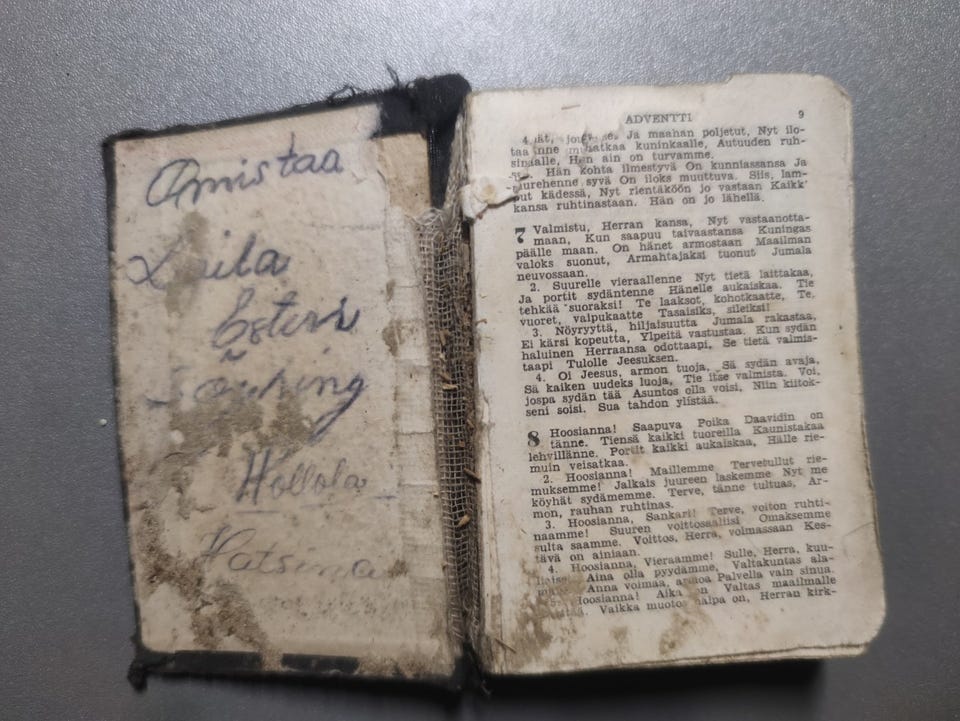 Omistaa
Laila
Esteri
Hollola
ADVENTTI 9
Ja maahan poljetut, Nyt ilo-
kuninkaalle, Autuuden ruh-
sinaalle, Hän ain on turvamme.
Hän kohta ilmestyvä On kunniassansa Ja
syvä On iloks muuttuva. Siis, lam-
put kädessä, Nyt rientäköön jo vastaan Kaikk'
kansa ruhtinastaan. Hän on jo lähellä.
7 Valmistu, Herran kansa, Nyt vastaanotta-
maan, Kun saapuu taivaastansa Kuningas
päälle maan. On hänet armostaan Maailman
valoks suonut, Armahtajaksi tuonut Jumala
neuvossaan.
2. Suurelle vieraallenne Nyt tietä laittakaa,
Ja portit sydäntenne Hänelle aukaiskaa. Tie
tehkää suoraksi! Te laaksot, kohotkaatte, Te,
vuoret, valpukaatte Tasaisiks, sileiksi!
3. Nöyryyttä, hiljaisuutta Jumala rakastaa,
Ei kärsi kopeutta, Ylpeitä vastustaa. Kun sydän
haluinen Herraansa odottaapi, Se tietä valmis-
taapi Tulolle Jeesuksen.
4. Oi Jeesus, armon tuoja, Sä sydän avaja,
Sä kaiken uudeks luoja, Tie itse valmista. Voi,
jospa sydän tää Asuntos olla voisi, Niin kiitok-
seni soisi. Sua tahdon ylistää.
8 Hoosianna! Saapuva Poika Daavidin on
tänne. Tiensä kaikki tuoreilla Kaunistakaa
lehvillänne. Portit kaikki aukaiskaa, Hälle rie-
muin veisatkaa.
2. Hoosianna! Maillemme Tervetullut rie-
muksemme! Jalkais juureen laskemme Nyt me
köyhät sydämemme. Terve, tänne tultuas, Ar-
mon, rauhan ruhtinas.
3. Hoosianna, Sankari! Terve, voiton ruhti-
naamme! Suuren voittosaaliisi Omaksemme
sulta saamme. Voittos, Herra, voimassaan Kes-
tävä on ainiaan.
4. Hoosianna, Vieraamme! Sulle, Herra, kuu-
Aina olla pyydämme, Valtakuntas ala-
Anna voimaa, armoa Palvella vain sinua.
Hoosianna! Aika on Valtas maailmalle
Vaikka muoto halpa on, Herran kirk-